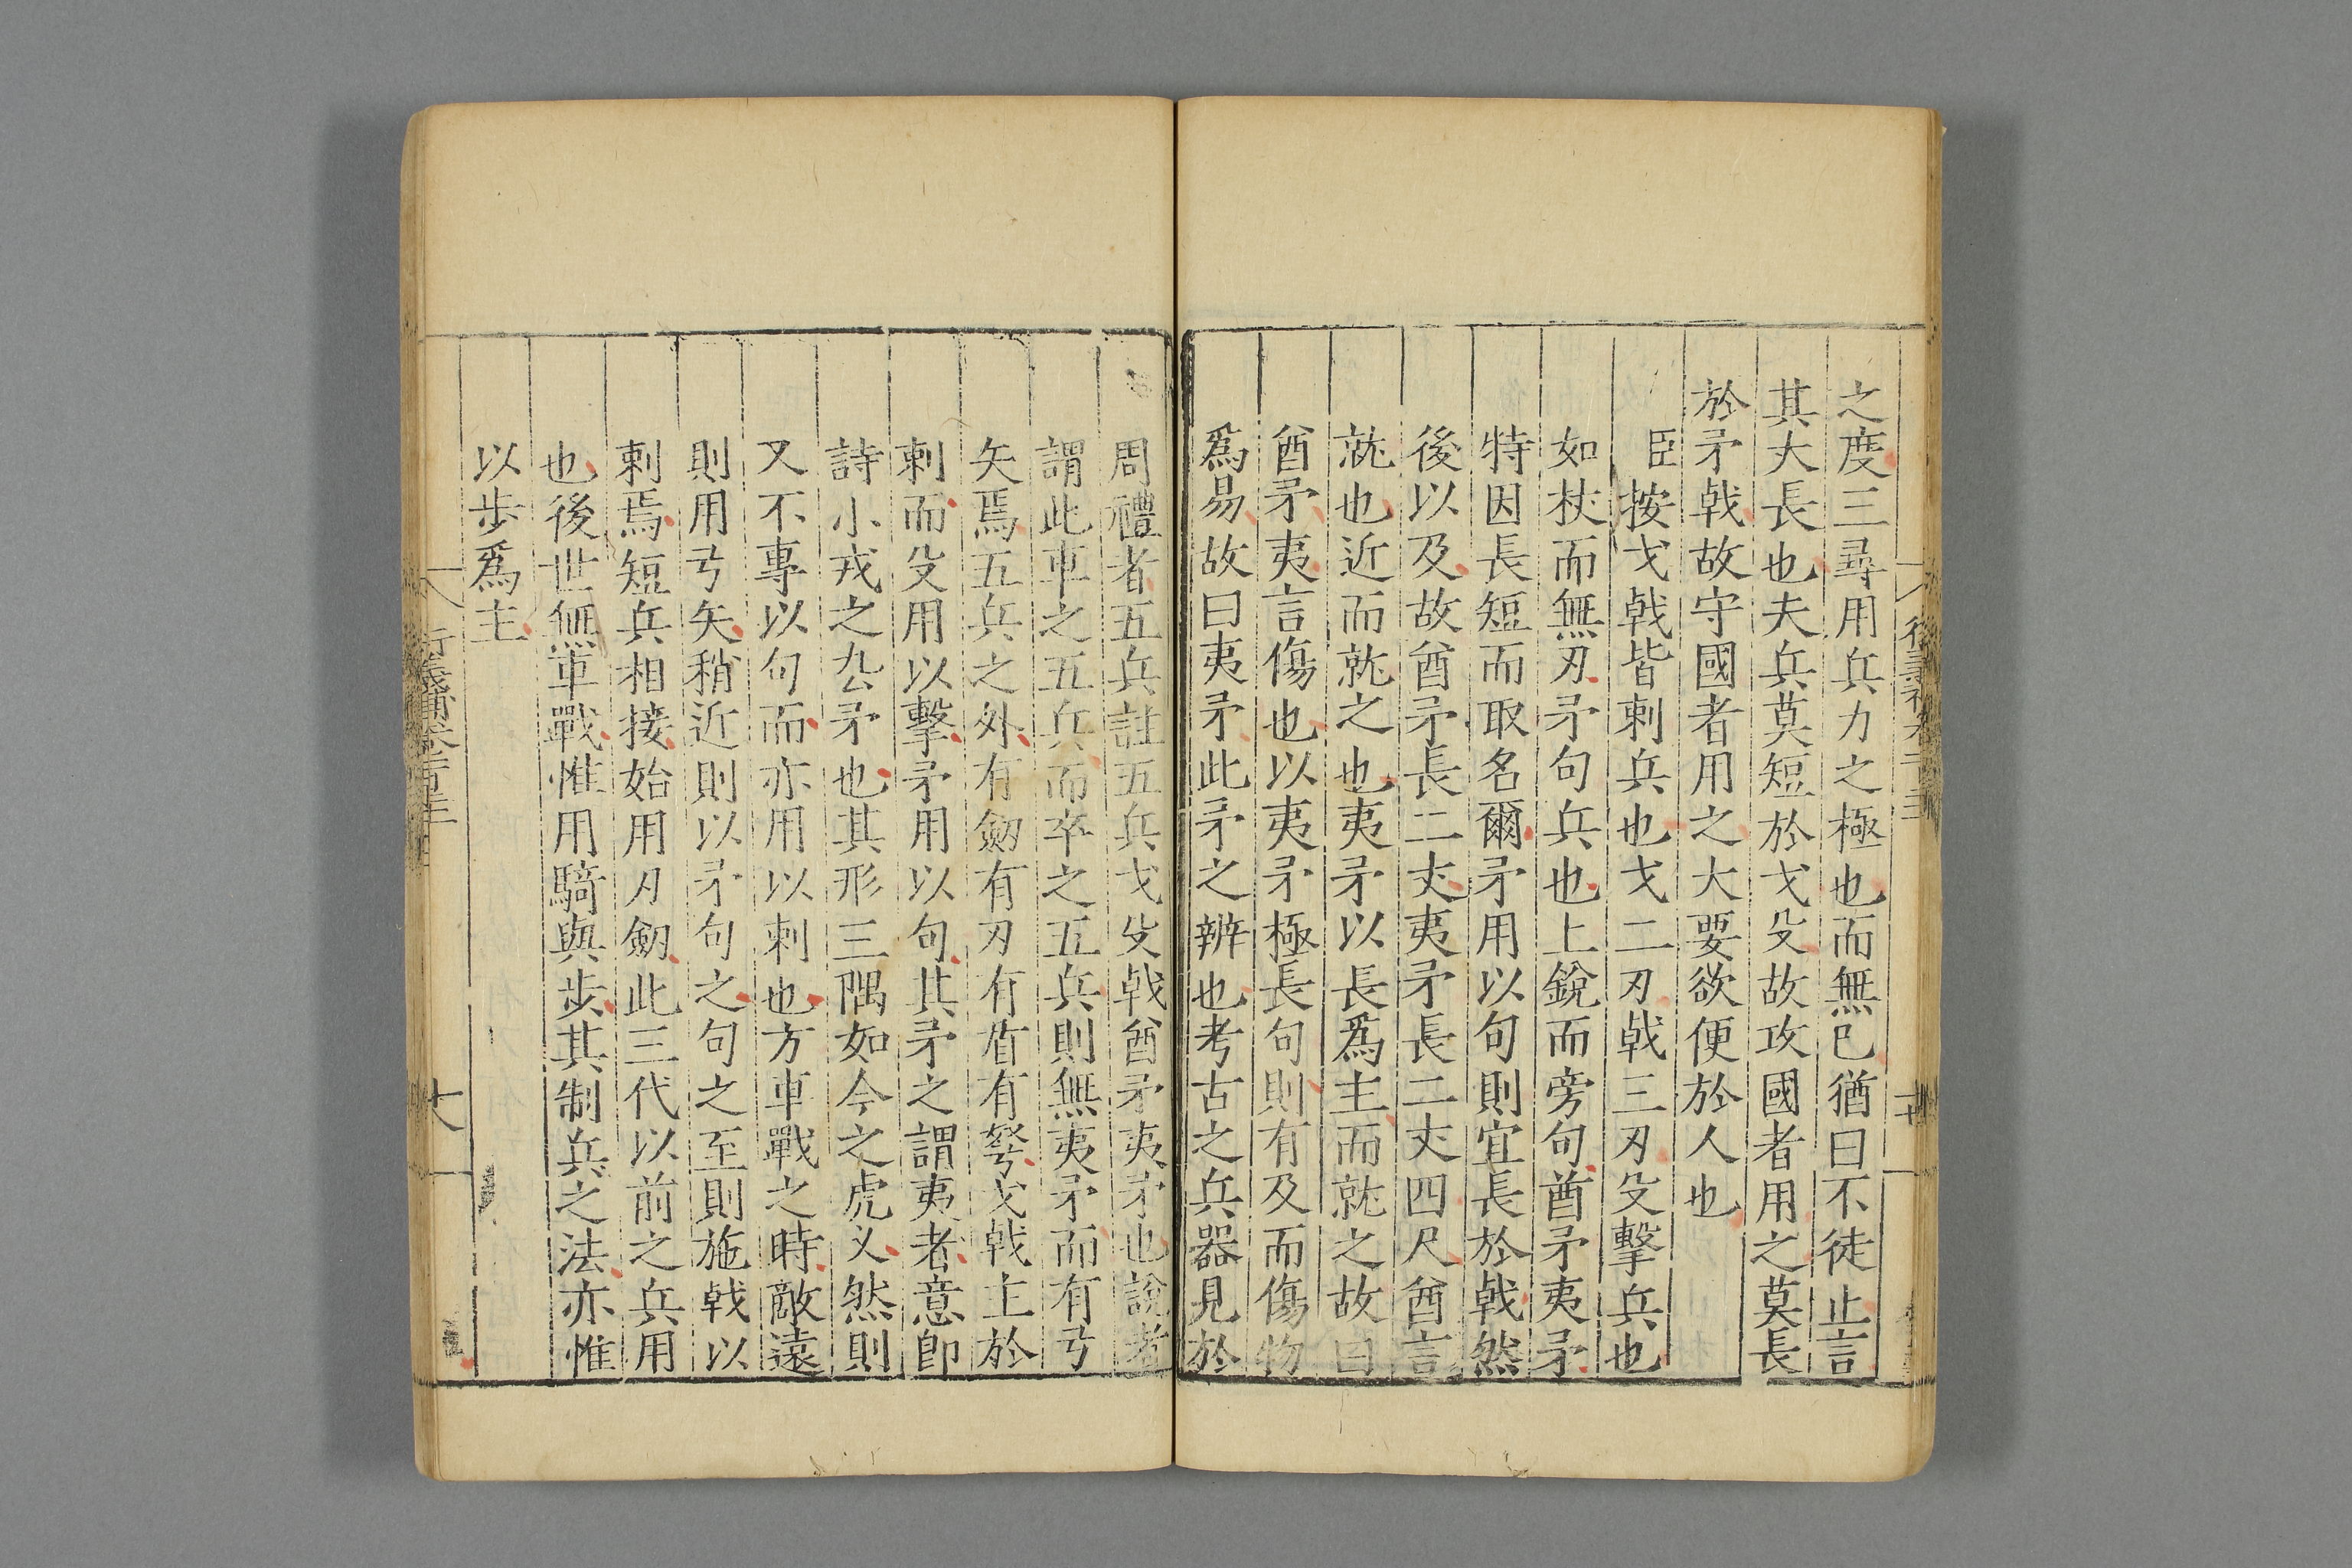 之度三尋用兵力之極也而無已猶曰不徒止言
其大長也夫兵莫短於戈殳故攻國者用之莫長
於矛戟故守國者用之大要欲便於人也
臣按戈戟皆刺兵也戈二刃戟三刃殳擊兵也
如杖而無刃矛句兵也上銳而旁句酋矛夷矛
特因長短而取名爾矛用以句則宜長於戟然
後以及故酋矛長二丈夷矛長二丈四尺酋言
就也近而就之也夷矛以長爲主而就之故曰
酋矛夷言傷也以夷矛極長句則有及而傷物
爲易故曰夷矛此矛之辨也考古之兵器見於
周禮者五兵註五兵戈殳戟酋矛夷矛也說者
謂此車之五兵而卒之五兵則無夷矛而有弓
矢焉五兵之外有劒有刃有盾有弩戈戟主於
刺而殳用以擊矛用以句其矛之謂夷者意卽
詩小戎之厹矛也其形三隅如今之虎乂然則
又不專以句而亦用以刺也方車戰之時敵遠
則用弓矢稍近則以矛句之句之至則施戟以
刺焉短兵相接始用刀劒此三代以前之兵用
也後世無車戰惟用騎與步其制兵之法亦惟
以步爲主